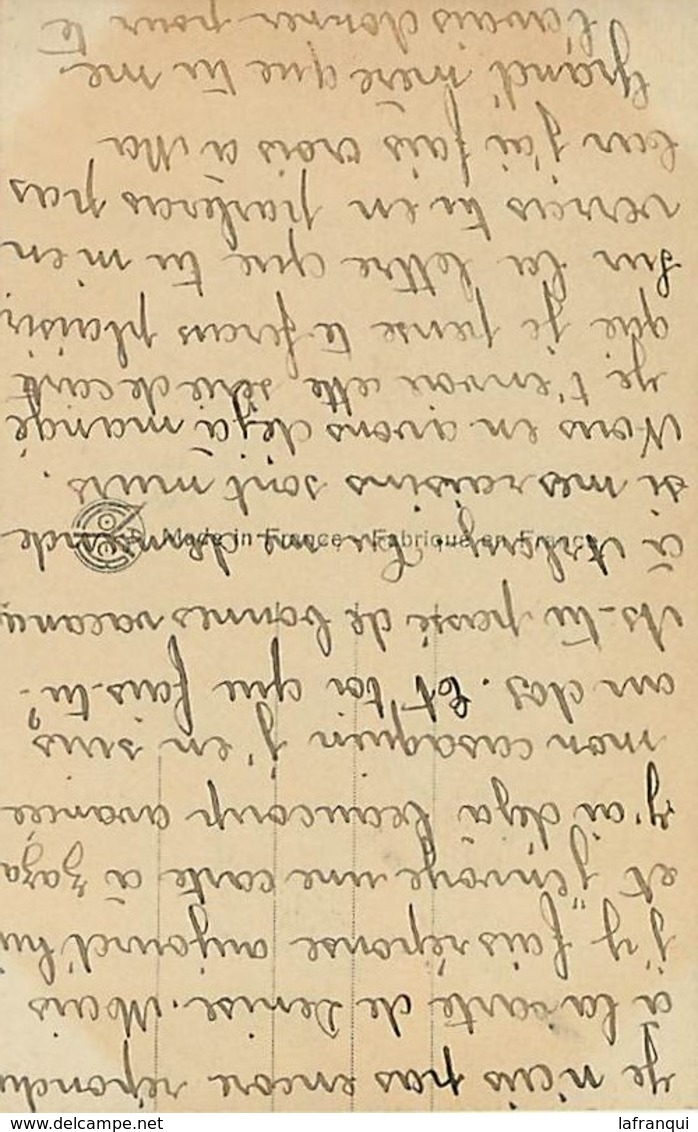 Je n'ais pas encore répondu
à la carte de Denise. Mais
j'y fais réponse aujourd'hui
et j'envoye une carte à Zaza
J'ai déjà beaucoup avancée
mon casaquin j'en suis
au dos. Et toi que fais-tu?
As-tu passé de bonnes vacances
à Tu me demande
si mes raisins sont murs.
Nous en avons déjà mangé
Je t'envoie cette série de carte
que je pense te feras plaisir
Sur la lettre que tu m'en
verras tu en parleras pas
car j'ai fais crois a Ma
Grand' mère que tu me
l'avais donner pour te
Made in France - Fabriqué en France
delcampe.net
lafranqui